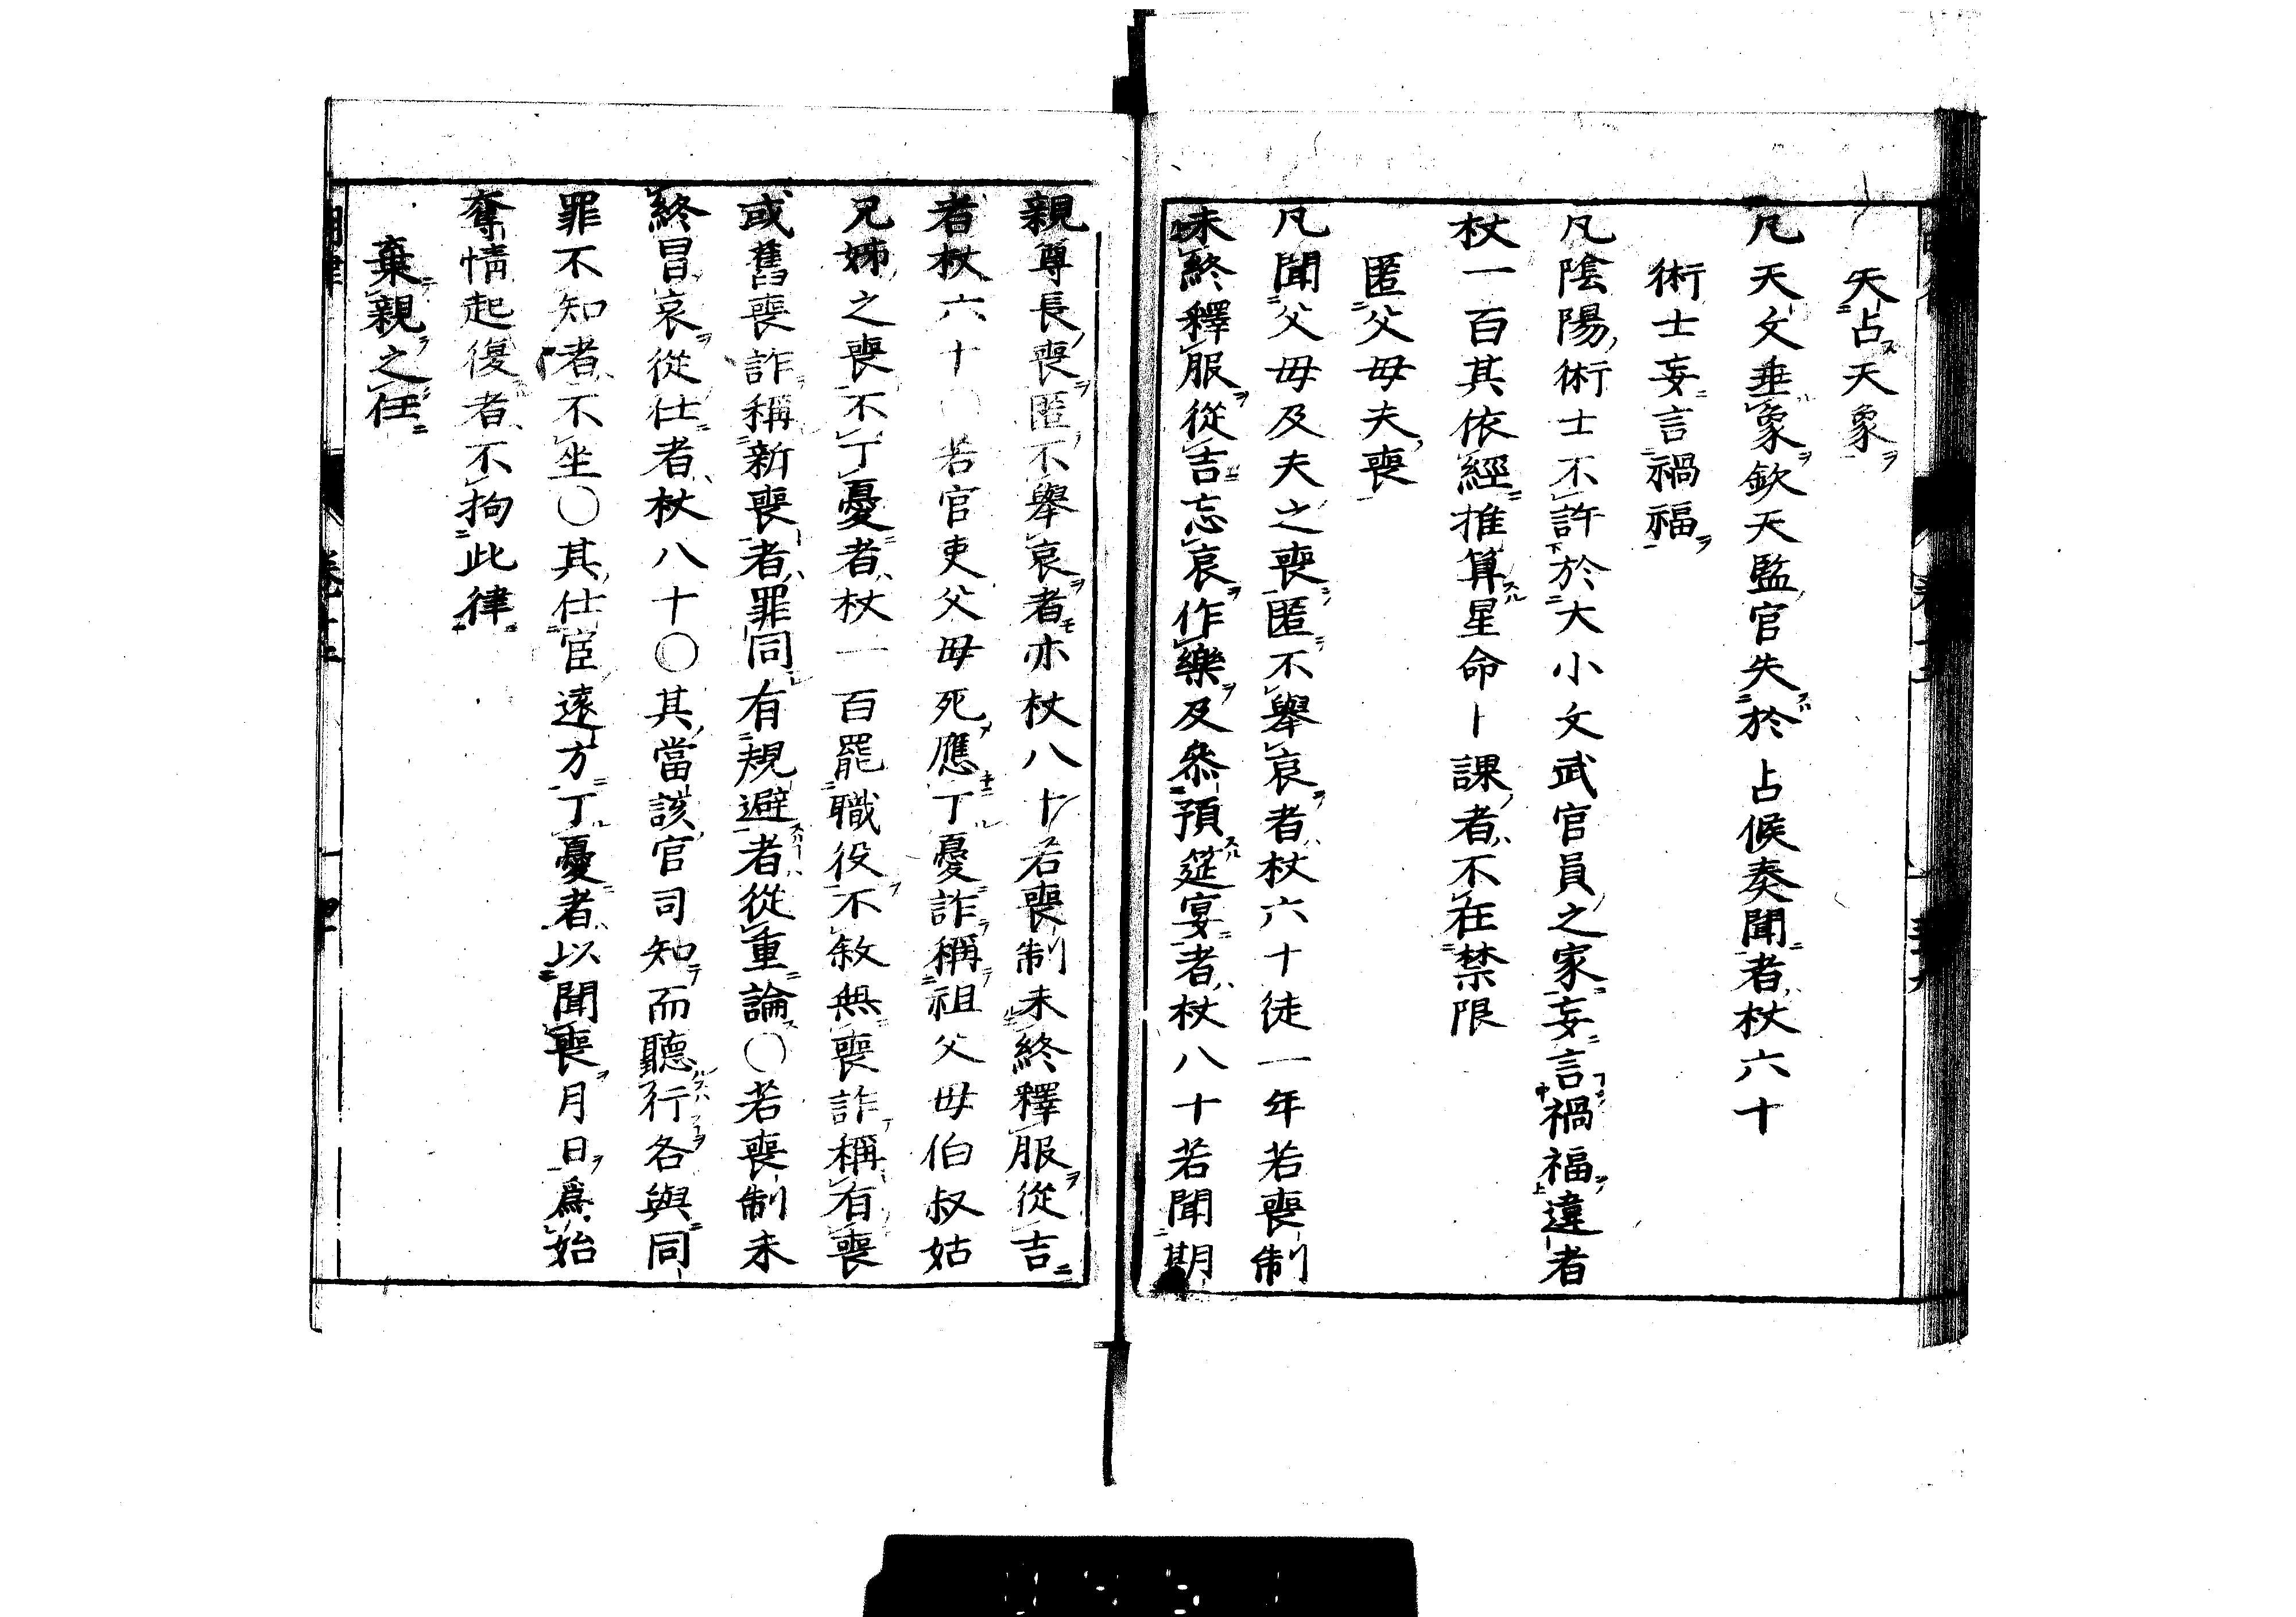 失占天象
凡天文垂象欽天監官失於占候奏聞者杖六十
術士妄言禍福
凡陰陽術士不許於大小文武官員之家妄言禍福違者
杖一百其依經推算星命卜課者不在禁限
匿父母夫喪
凡聞父母及夫之喪匿不舉哀者杖六十徒一年若喪制
未終釋服從吉忘哀作樂及叅預筵宴者杖八十若聞期
親尊長喪匿不舉哀者亦杖八十若喪制未終釋服從吉
者杖六十〇若官吏父母死應丁憂詐稱祖父母伯叔姑
兄姊之喪不丁憂者杖一百罷職役不敘無喪詐稱有喪
或舊喪詐稱新喪者罪同有規避者從重論〇若喪制未
終冒哀從仕者杖八十〇其當該官司知而聽行各與同
罪不知者不坐〇其仕宦遠方丁憂者以聞喪月日爲始
奪情起復者不拘此律
棄親之任